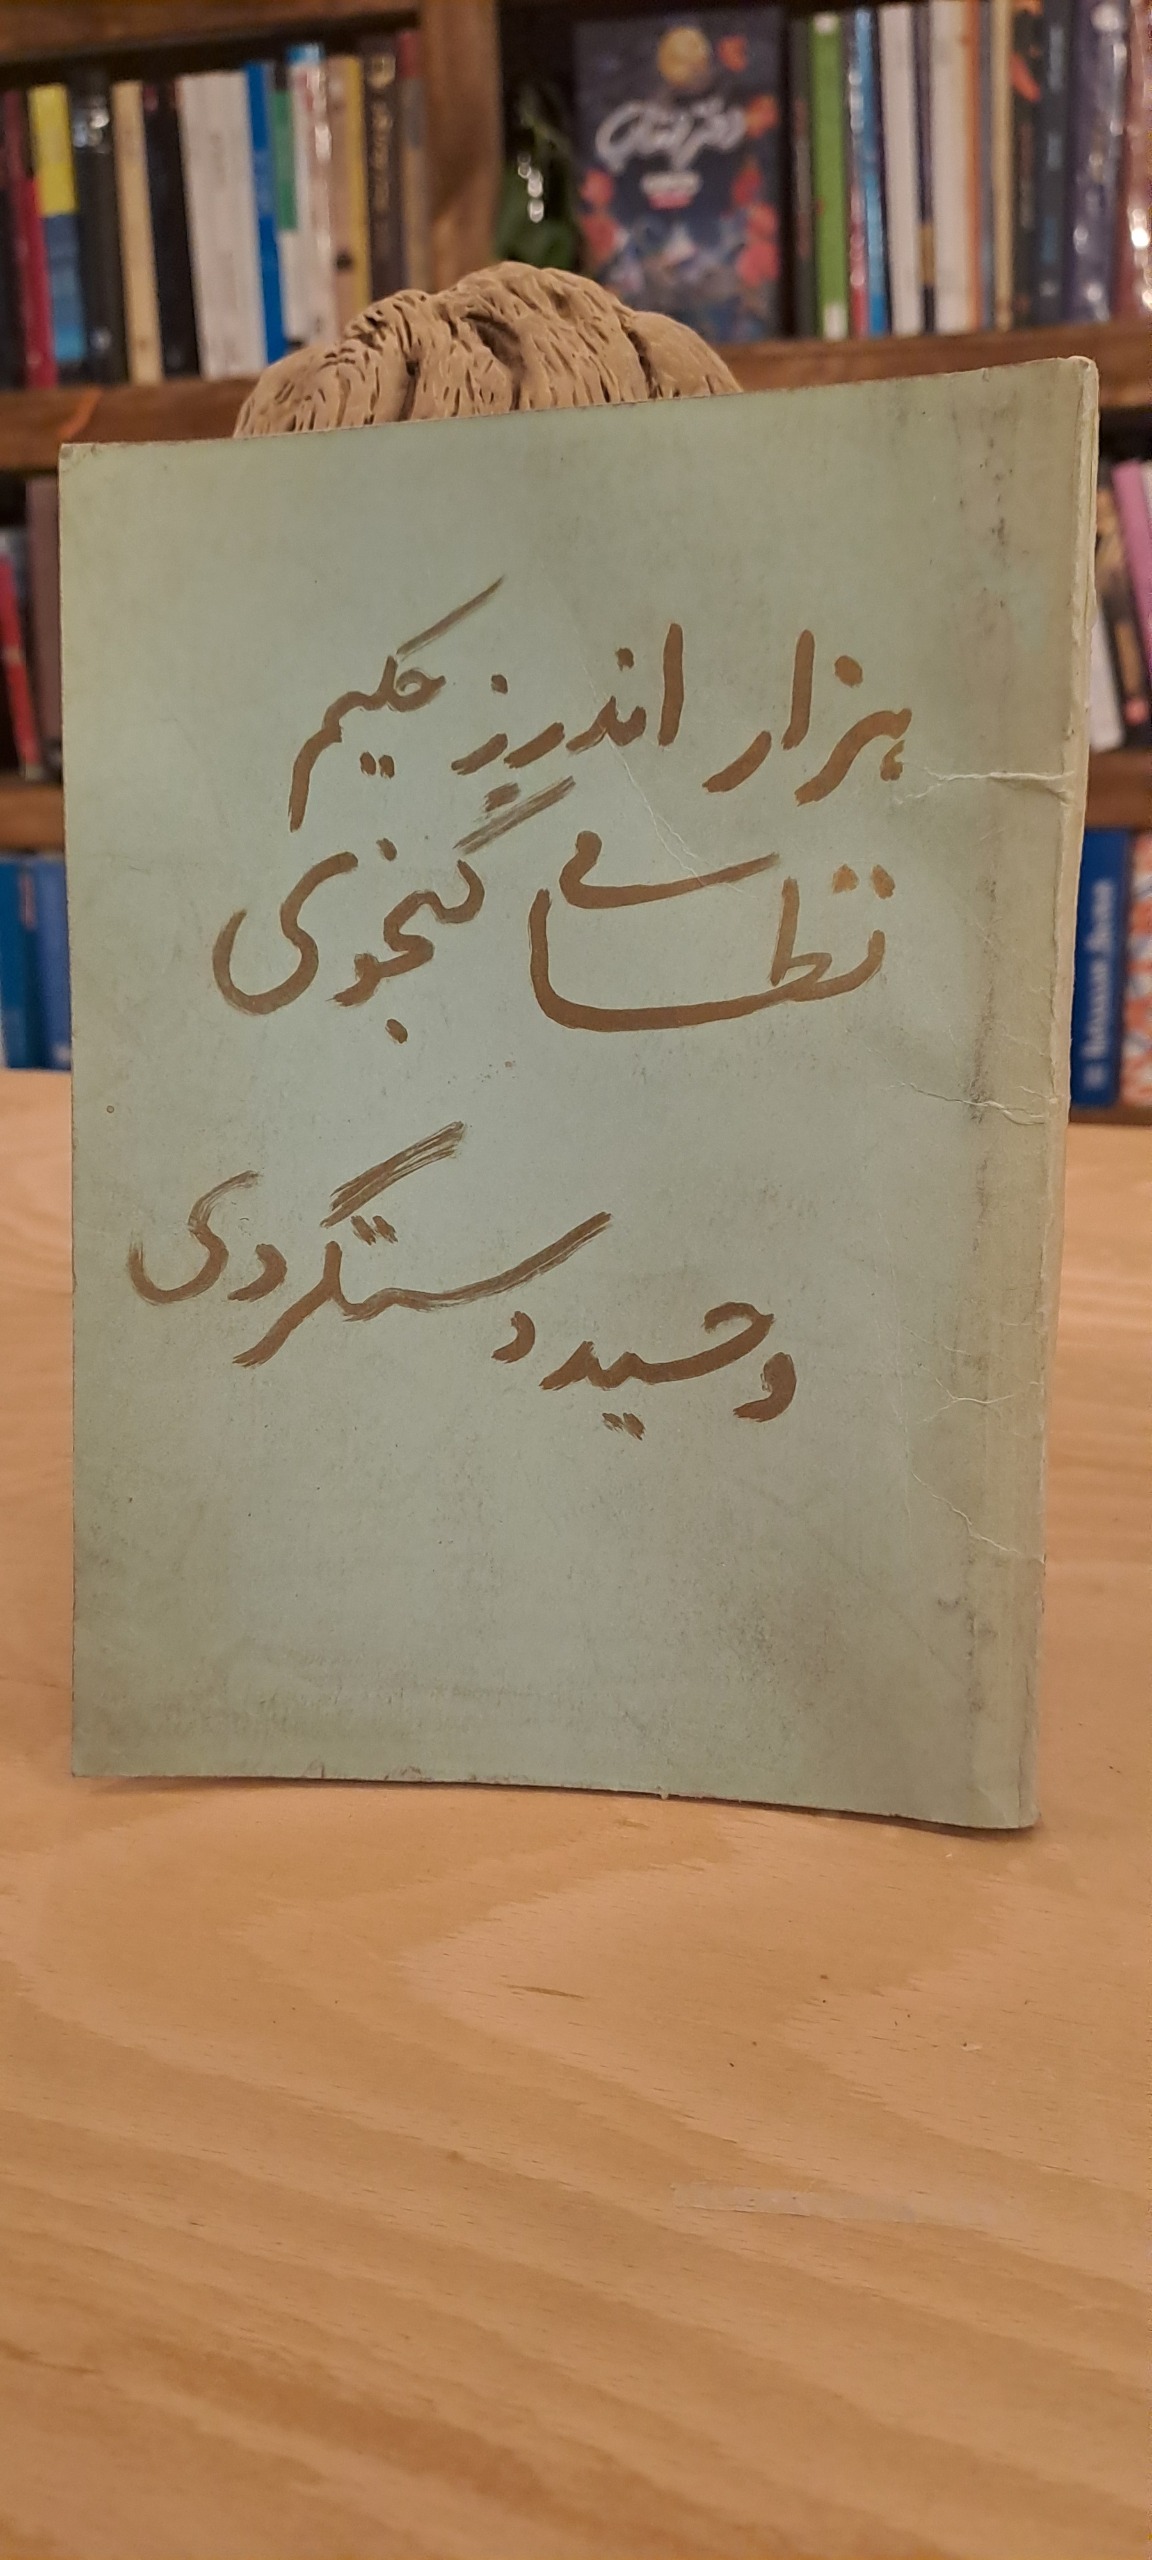 هزار اندرز حکیم
نظامی گنجوی
وحید دستگردی